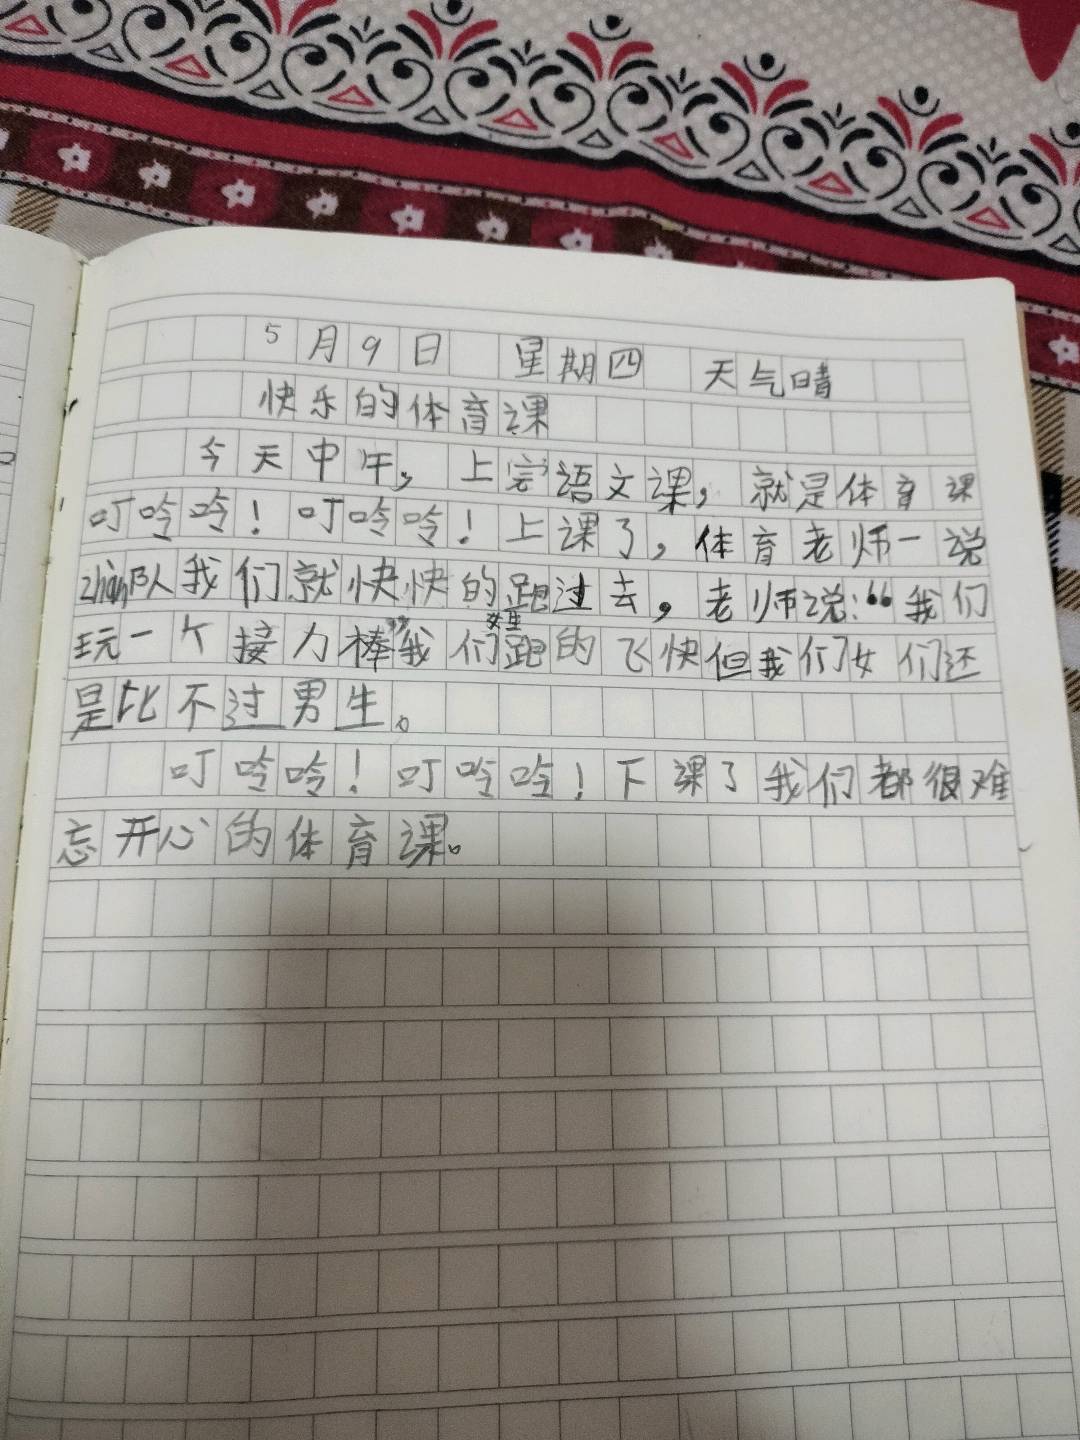 5月9日 星期四 天气晴
快乐的体育课
今天中午，上完语文课，就是体育课
叮呤呤！叮呤呤！上课了，体育老师一说
zhàn队我们就快快的跑过去，老师说：“我们
玩一个接力棒”我们女生跑的飞快但我们女们还
是比不过男生。
叮呤呤！叮呤呤！下课了我们都很难
忘开心的体育课。